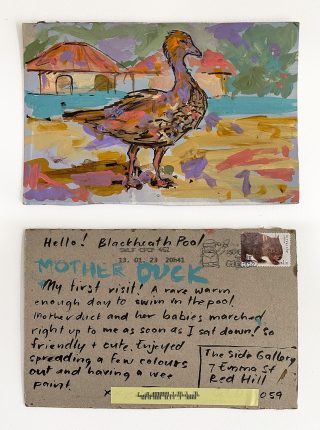 Hello! Blackheath Pool
13.01.23 20641
MOTHER DUCK
My first visit! A rare warm
enough day to swim in the pool.
Mother duck and her babies marched
right up to me as soon as I sat down! So
friendly + cute. Enjoyed
spreading a few colours
out and having a wee
paint.
x
The Side Gallery
7 Emma St
Red Hill
059